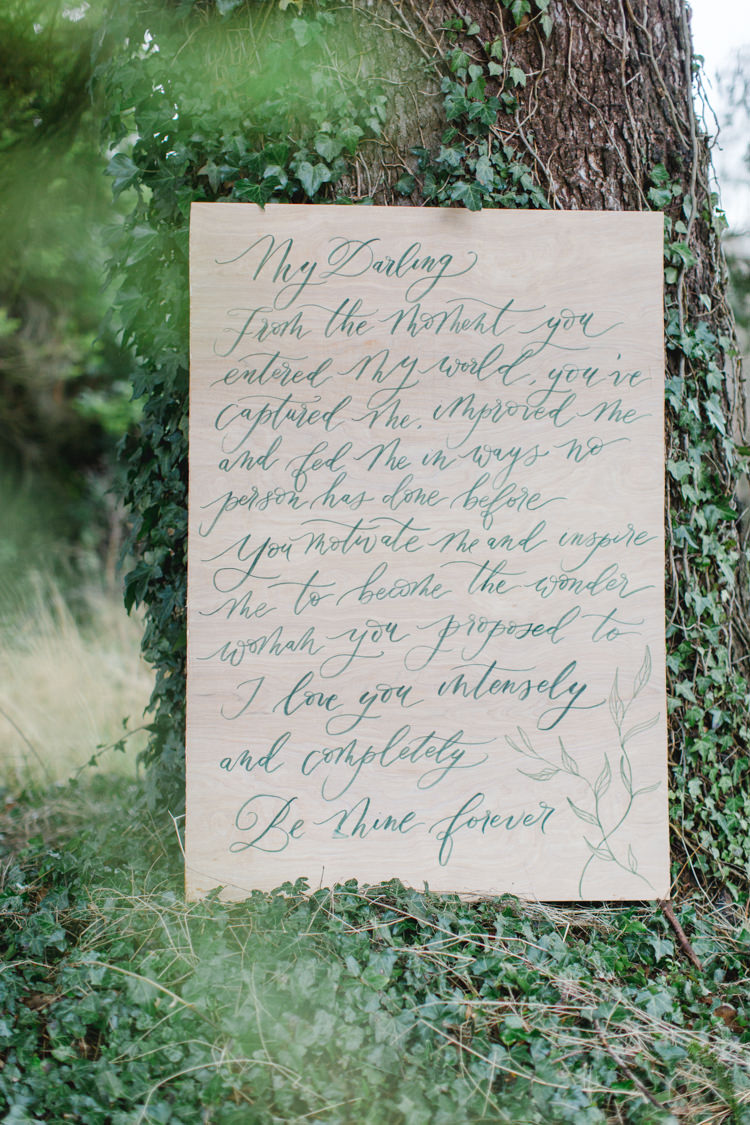 My Darling
From the moment you
entered my world, you've
captured me, improved me
and fed me in ways no
person has done before
You motivate me and inspire
me to become the wonder
woman you proposed to
I love you intensely
and completely
Be mine forever